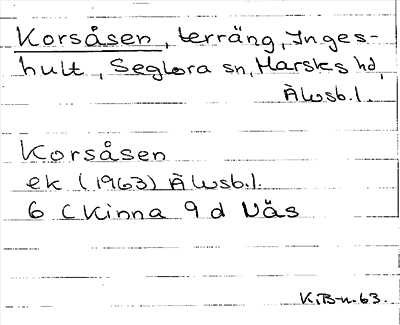 Korsåsen, terräng, Inges-
hult, Seglora sn, Marsks hd,
Älvsb.l.
Korsåsen
ek (1963) Älvsb.l.
6 C Kinna 9 d Näs
K.B-n. 63.